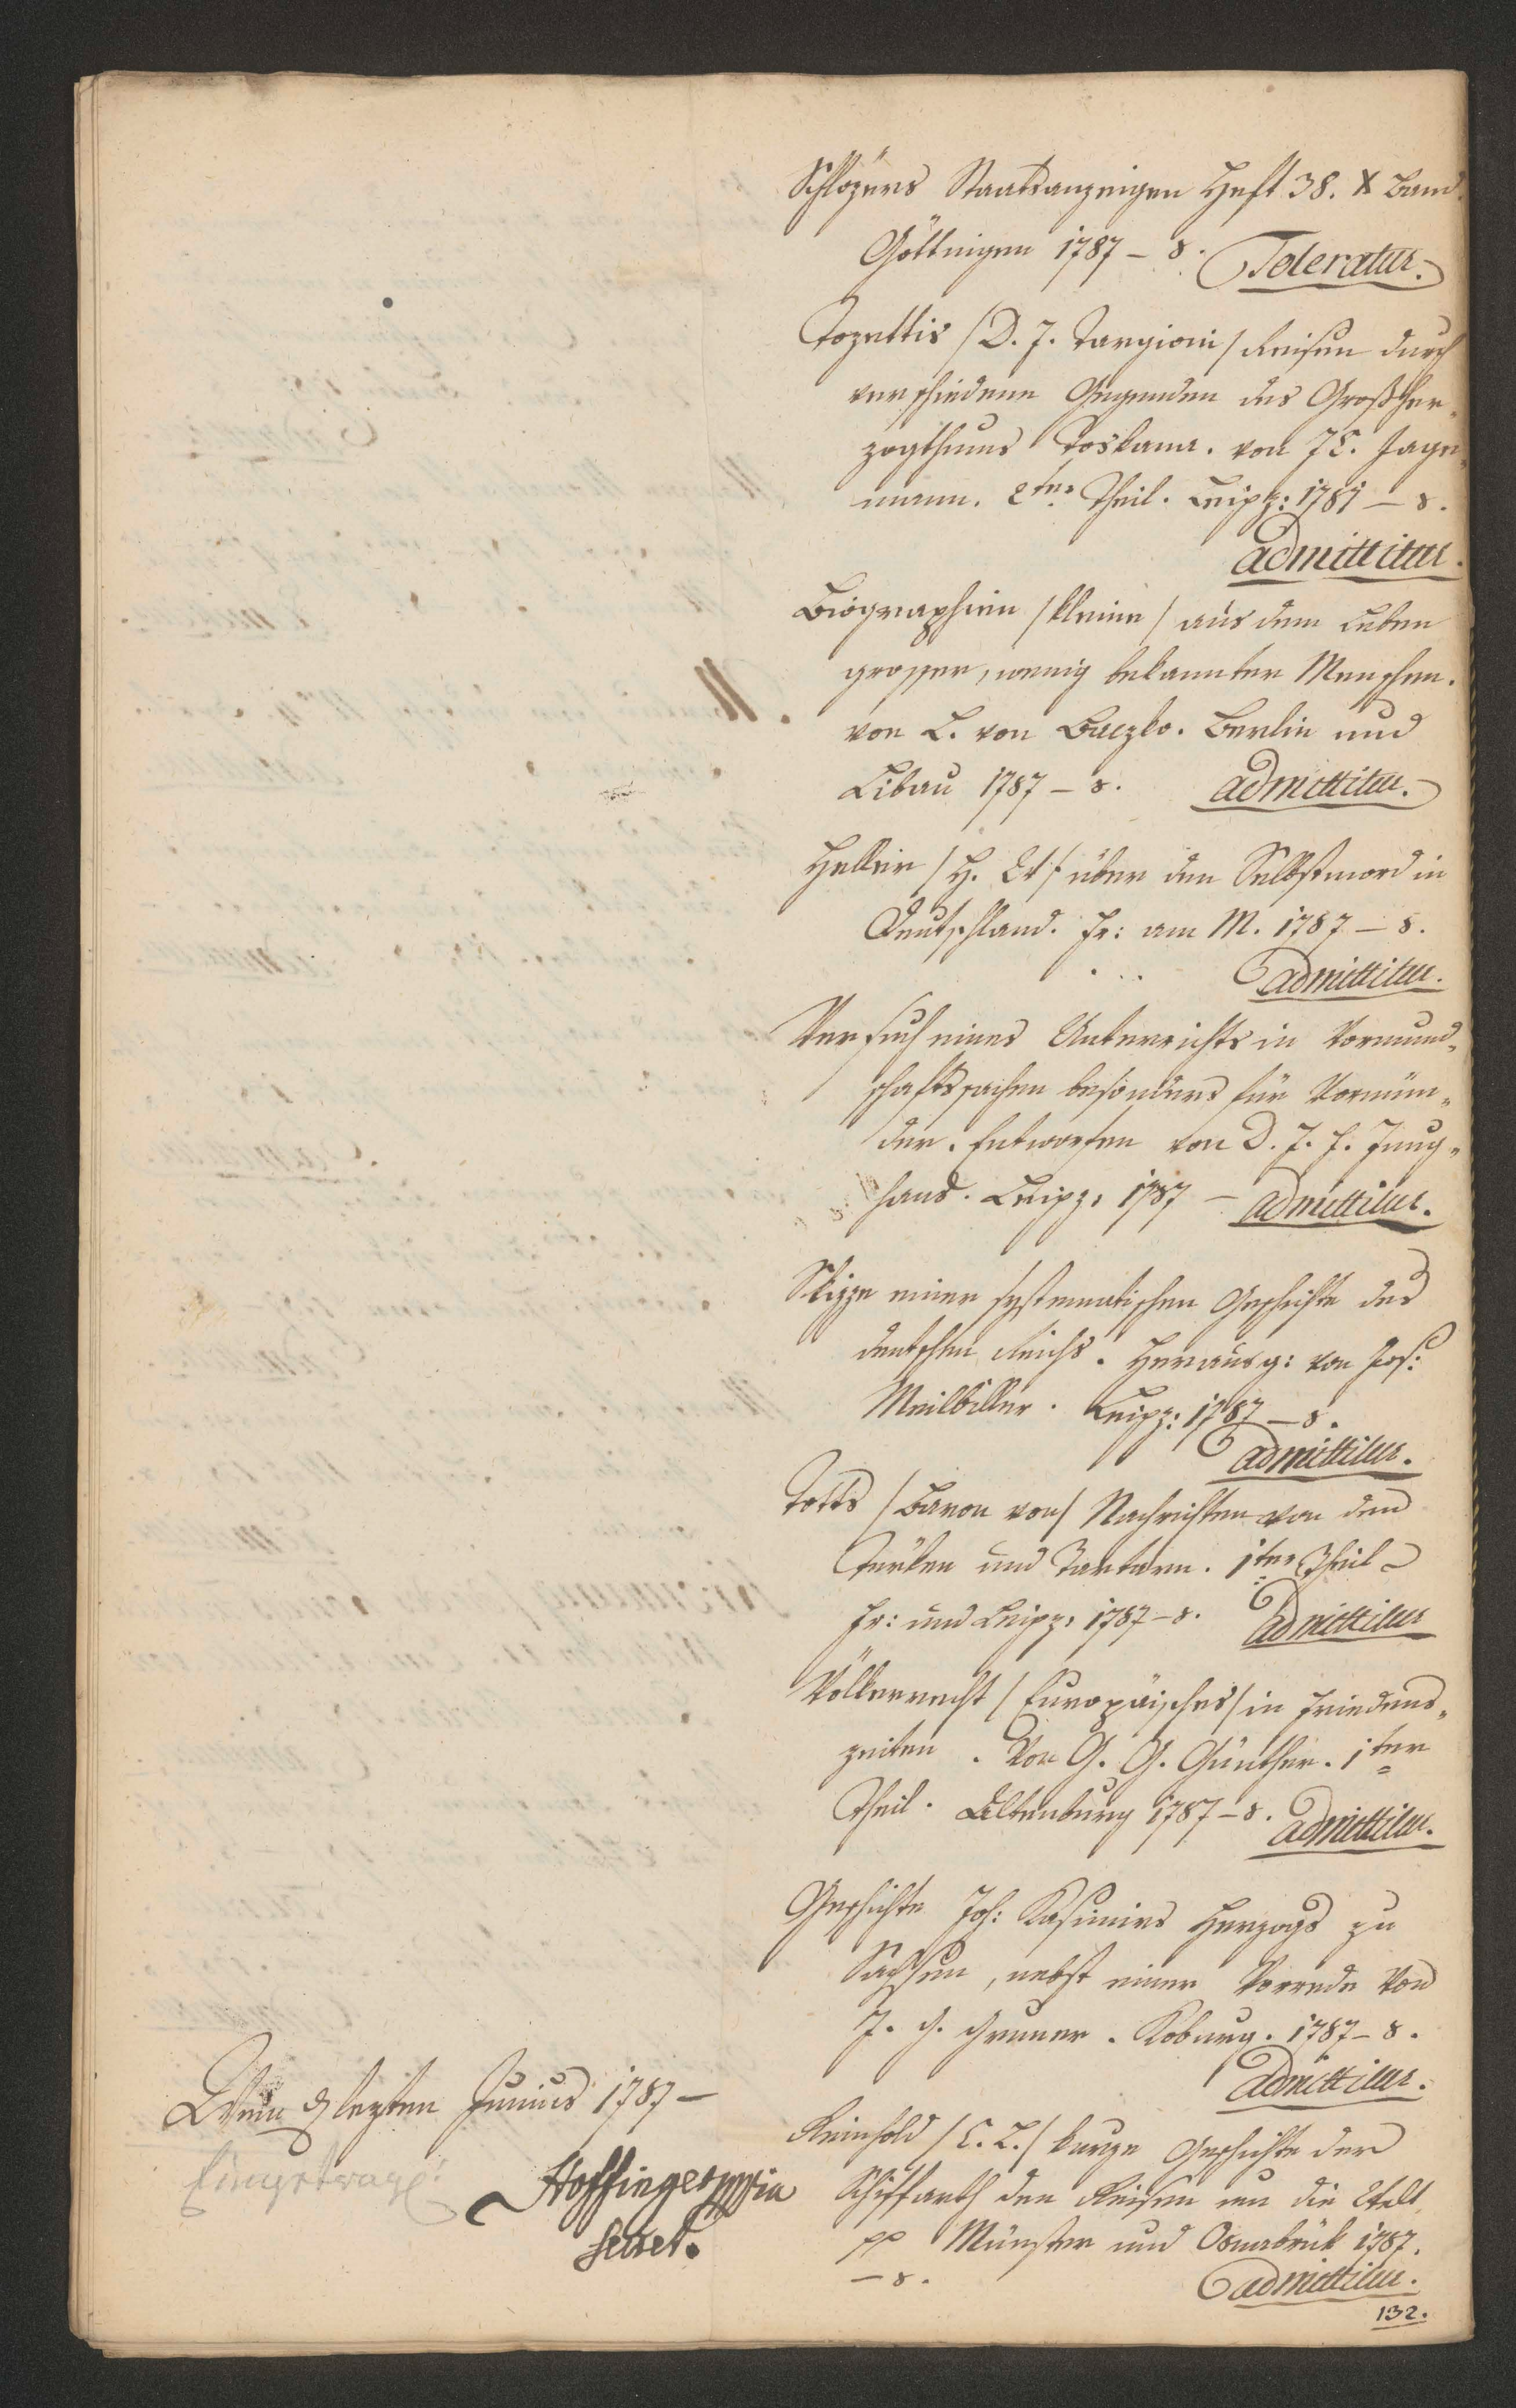 Schlözers Staatsanzeigen Heft 38. X Band.
Göttingen 1787 – 8. Toleratur.
Tozettis /D. J. Targioni/ Reisen durch
verschiedene Gegenden des Großher„
zogthums Toskana. von J C. Jage„
mann. 2ter Theil. Leipz: 1787 – 8.
admittitur.
Biographien /kleine/ aus dem Leben
grosser, wenig bekannter Menschen.
von L. von Baczko. Berlin und
Libau 1787 – 8. admittitur.
Heller /H. W/ über den Selbstmord in
Deutschland. Fr: am M. 1787 – 8.
admittitur.
Versuch eines Unterrichts in Vormund„
schaftssachen besonders für Vormün„
der. Entworfen von D. J. F. Jung„
hans. Leipz: 1787 – admittitur.
Skizze einer systematischen Geschichte des
deutschen Reichs. Herausg: von Jos:
Milbiller. Leipz: 1787 – 8.
admittitur.
Totts /Baron von/ Nachrichten von den
Türken und Tartarn. 1ter Theil
Fr: und Leipz: 1787 – 8. admittitur
Völkerrecht /Europäisches/ in Friedens„
zeiten. Von G. G. Günther. 1ter
Theil. Altenburg 1787 – 8. admittitur.
Geschichte Joh: Kasimirs Herzogs zu
Sachsen, nebst einer Vorrede von
J. G. Gruner. Koburg. 1787 – 8.
admittitur.
Reinhold /C. L./ kurze Geschichte der
Schiffarth der Reisen um die Welt
pp Münster und Osnabrük 1787.
– 8. admittitur.
132.
Wien d. lezten Junius 1787 –
Eingetrage:
Hoffinger mpia
Secret.